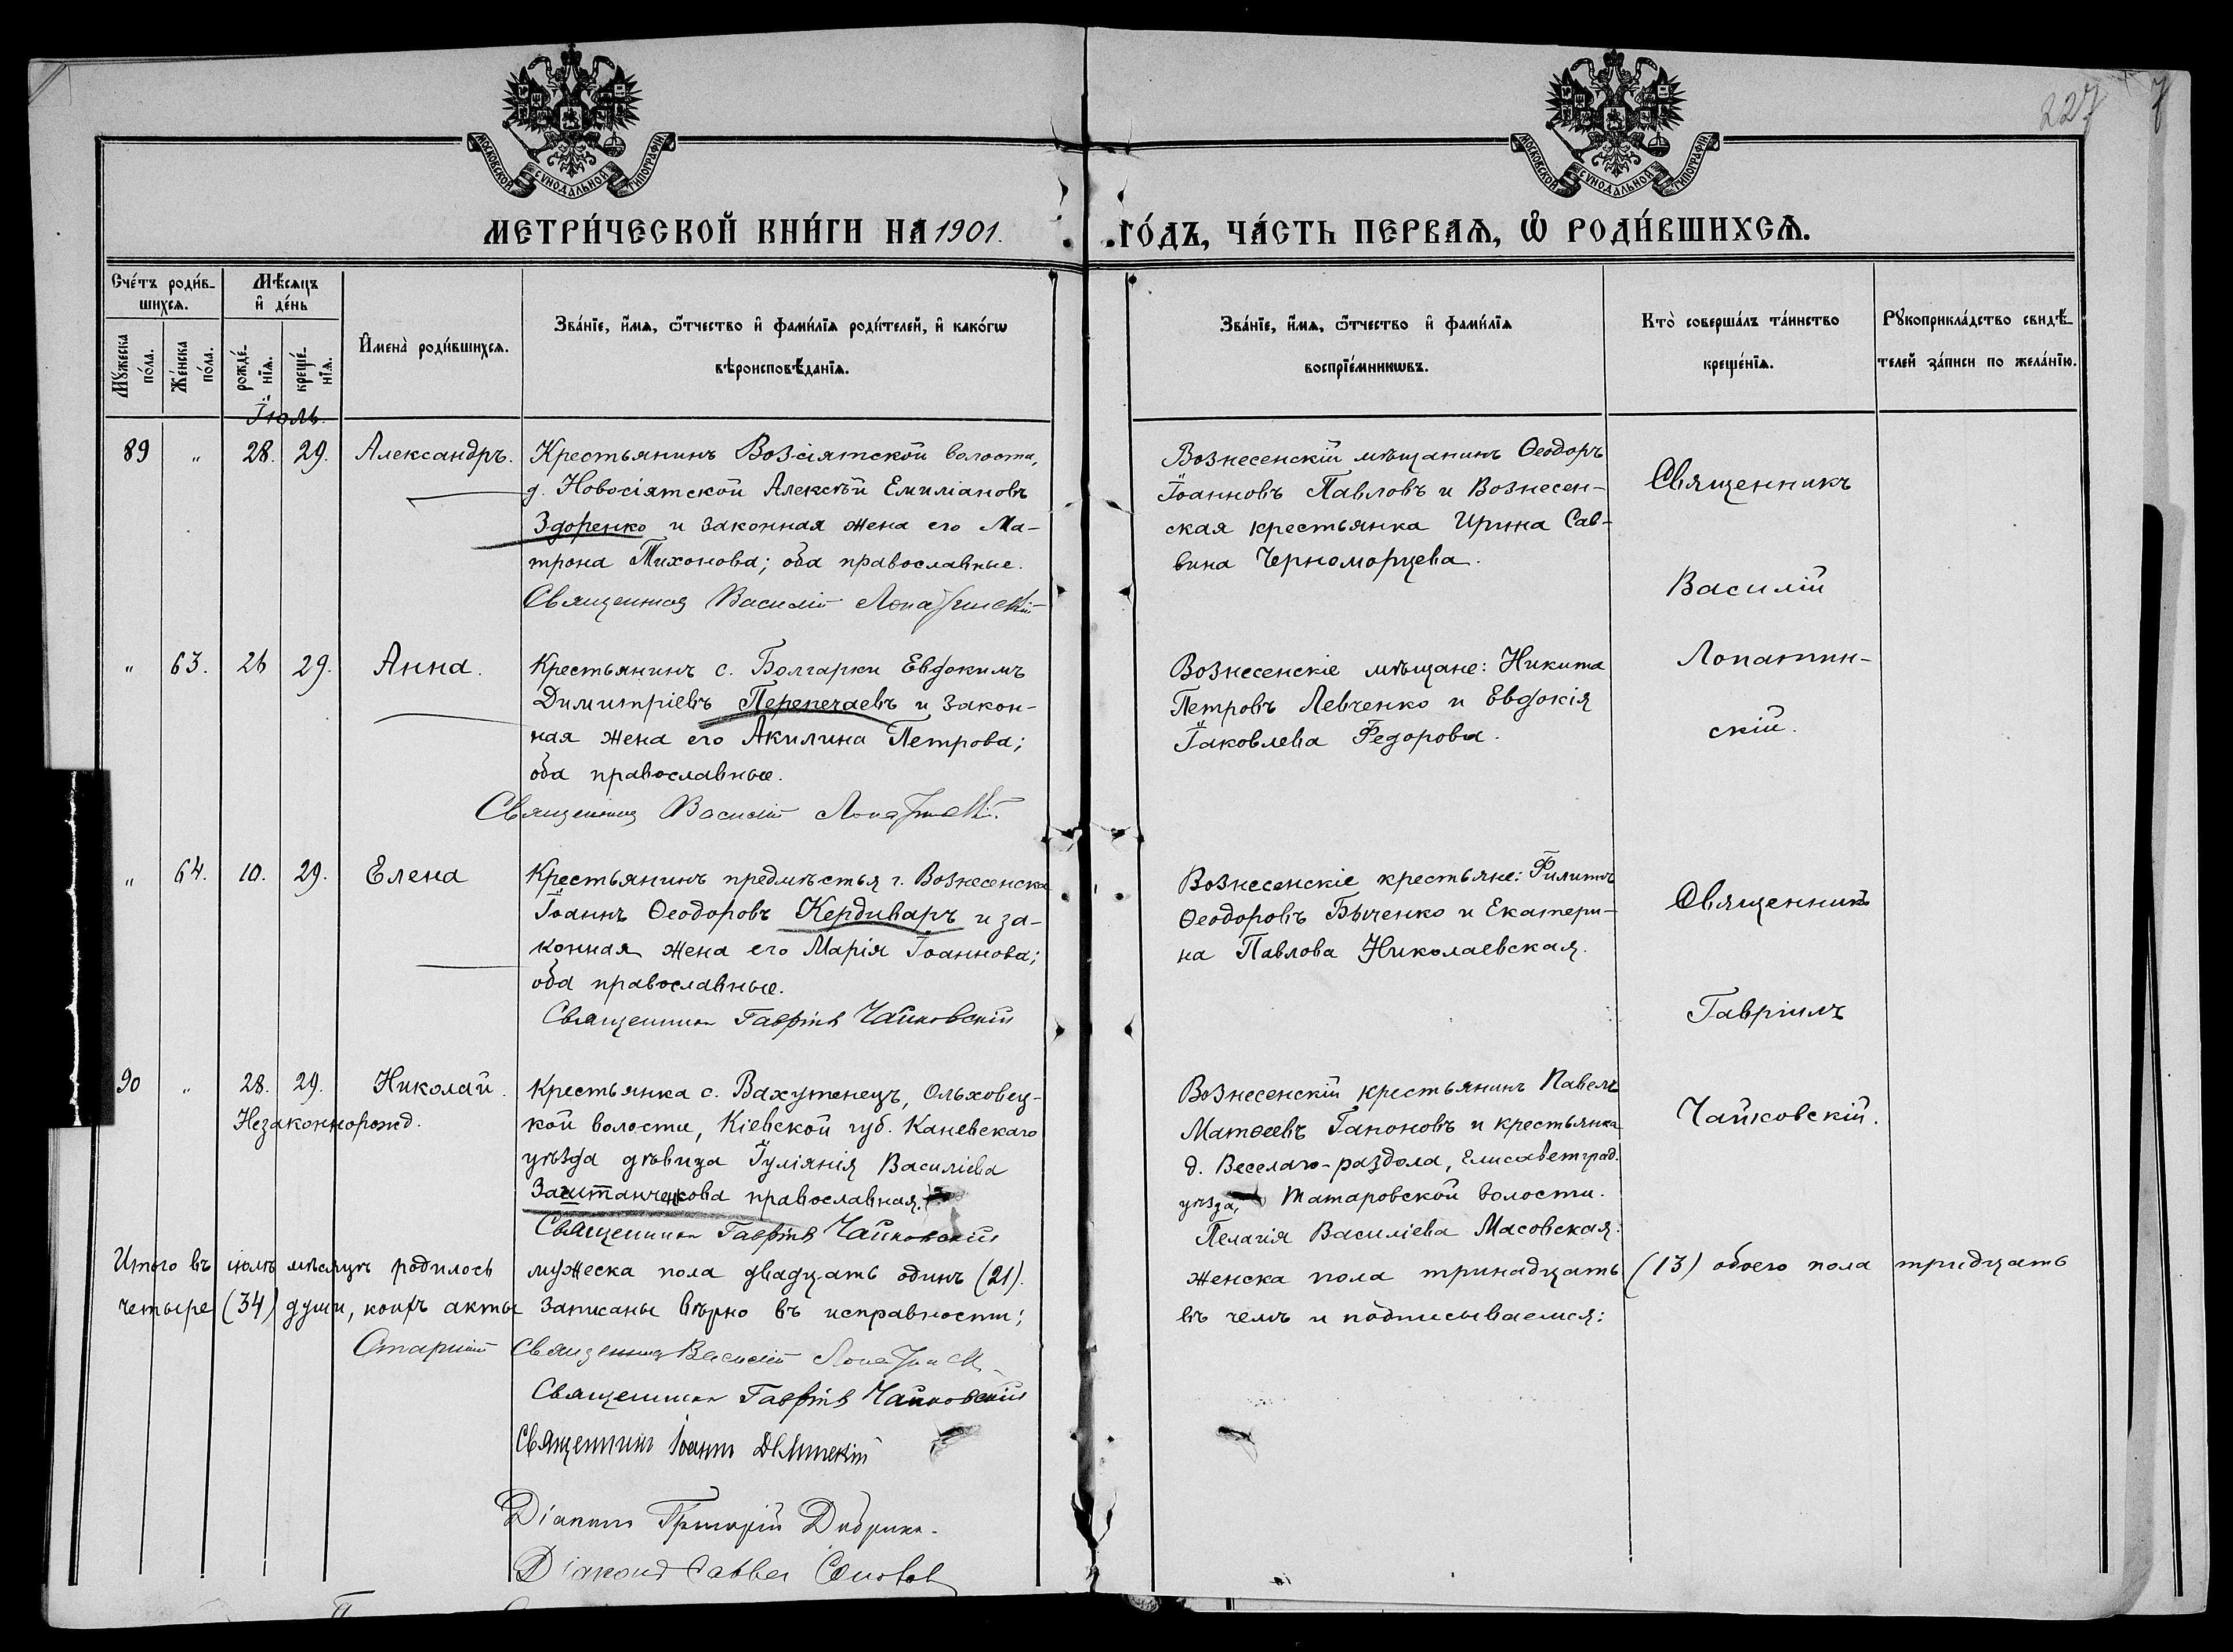 МОСКОВСКОЙ СУНОДАЛЬНОЙ ТИПОГРАФІИ
МОСКОВСКОЙ СУНОДАЛЬНОЙ ТИПОГРАФІИ
227
МЕТРИ́ЧЕСКОЙ КНИ́ГИ НА 1901. ГО́ДЪ, ЧА́СТЬ ПЕРВАѦ, Ѡ РОДИ́ВШИХСѦ.
Сче́тъ роди́в-
шихсѧ.
Му́жеска по́ла.
Же́нска по́ла.
Мѣ́сяцъ
и де́нь
рожде́-
нїѧ.
креще́-
нїѧ.
Имена̀ роди́вшихсѧ.
Зва́нїе, и́мѧ, ѻ́тчество и фами́лїѧ роди́телей, и како́гѡ
вѣроисповѣ́данїѧ.
Зва́нїе, и́мѧ, ѻ́тчество и фами́лїѧ
воспрїе́мникѡвъ.
Кто̀ соверша́лъ та́инство
креще́нїѧ.
Рꙋкоприкла́дство свидѣ́-
телей за́писи по жела́нїю.
Іюль.
89 " 28. 29. Александръ.
Крестьянинъ Возсіятской волости,
д. Новосіятской Алексѣй Емиліановъ
Здоренко и законная жена его Ма-
трона Тихонова; оба православные.
Священникъ Василій Лопатинскій
Вознесенскій мѣщанинъ Ѳеодоръ
Іоанновъ Павловъ и Вознесен-
ская крестьянка Ирина Сав-
вина Черноморцева.
Священникъ
Василій
Лопатин-
скій.
" 63. 26 29. Анна.
Крестьянинъ с. Болгарки Евдокимъ
Димитріевъ Перепечаевъ и закон-
ная жена его Акилина Петрова;
оба православные.
Священникъ Василій Лопатинскій.
Вознесенскіе мѣщане: Никита
Петровъ Левченко и Евдокія
Іаковлева Федорова.
" 64. 10. 29. Елена
Крестьянинъ предмѣстья г. Вознесенска
Іоаннъ Ѳеодоровъ Кердиваръ и за-
конная жена его Марія Іоаннова;
оба православные.
Священникъ Гавріилъ Чайковскій
Вознесенскіе крестьяне: Филиппъ
Ѳеодоровъ Быченко и Екатери-
на Павлова Николаевская.
Священникъ
Гавріилъ
Чайковскій.
90 " 28. 29. Николай.
Незаконнорожд.
Крестьянка с. Вахутенецъ, Ольховец-
кой волости, Кіевской губ. Каневскаго
уѣзда дѣвица Іуліанія Василіева
православная.
Священникъ Гавріилъ Чайковскій
Вознесенскій крестьянинъ Павелъ
Матѳеевъ Гапоновъ и крестьянка
д. Веселаго-раздола, Елисаветград.
уѣзда, Татаровской волости.
Пелагія Василіева Масовская.
Итого въ іюлѣ мѣсяцѣ родилось мужеска пола двадцать одинъ (21). женска пола тринадцать (13) обоего пола тридцать
четыре (34) души, коихъ акты записаны вѣрно въ исправности; въ чемъ и подписываемся:
Старшій Священникъ Василій Лопатинскій
Священникъ Гавріилъ Чайковскій
Священникъ Іоаннъ
Діаконъ Григорій
Діаконъ Савва